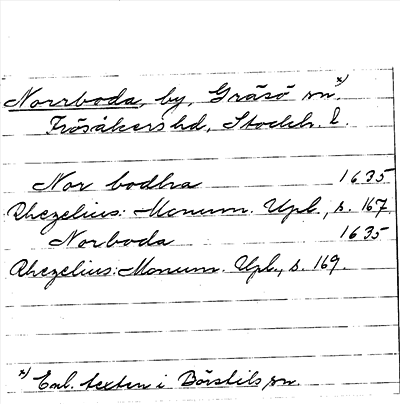 Norrboda, by, Gräsö sn x).
Frösåkers hd, Stockh. l.
Nor bodha 1635
Rhezelius: Monum. Upl., s. 167
Norboda 1635
Rhezelius: Monum. Upl., s. 169.
x) Enl. texten i Börstils sn.